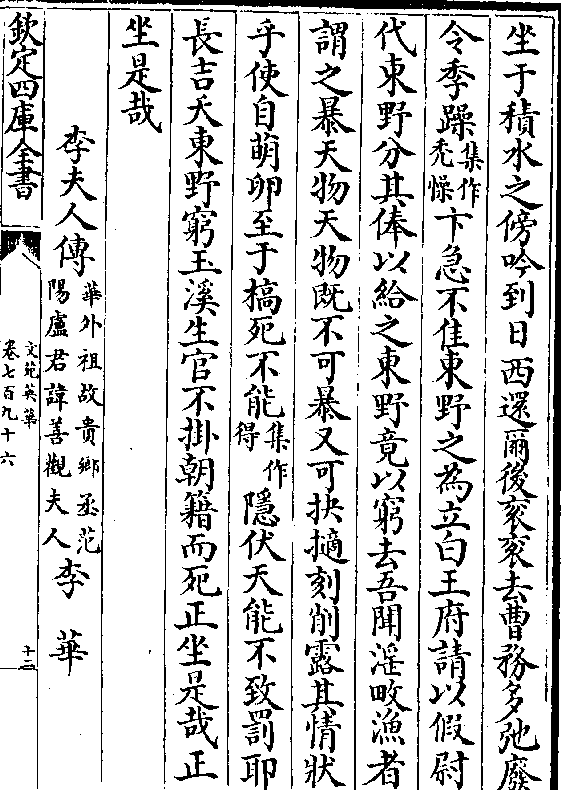 坐于積水之傍吟到日西還爾後衮衮去曹務多弛廢
令季躁集作禿懆卞急不佳東野之為立白王府請以假尉
代東野分其俸以給之東野竟以窮去吾聞淫畋漁者
謂之暴天物天物既不可暴又可抉擿刻削露其情狀
乎使自萌卵至于槁死不能集作得隱伏天能不致罰耶
長吉夭東野窮玉溪生官不掛朝籍而死正坐是哉正
坐是哉
李夫人傳華外祖故貴鄉丞范陽盧君諱善觀夫人李華
欽定四庫全書
文苑英華
卷七百九十六
十二